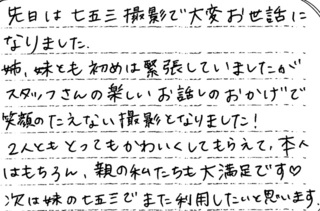 先日は七五三撮影で大変お世話に
なりました.
姉、妹とも初めは緊張していましたが
スタッフさんの楽しいお話しのおかげで
笑顔のたえない撮影となりました!
2人ともとってもかわいくしてもらえて、本人
はもちろん、親の私たちも大満足です♡
次は妹の七五三でまた利用したいと思います.